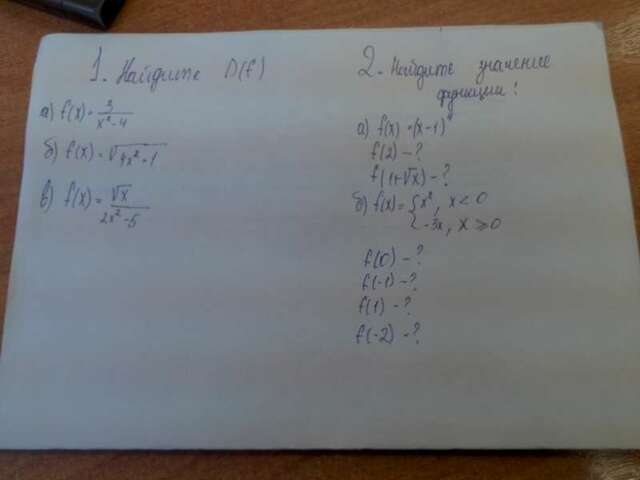 1. Найдите D(f)
а) f(x) = 3/(x²-4)
б) f(x) = √(4x²-1)
в) f(x) = √x/(2x²-5)
2. Найдите значение
функции:
а) f(x) = (x-1)⁴
f(2) - ?
f(1+√x) - ?
б) f(x) = { x², x < 0
{ -3x, x ⩾ 0
f(0) - ?
f(-1) - ?
f(1) - ?
f(-2) - ?